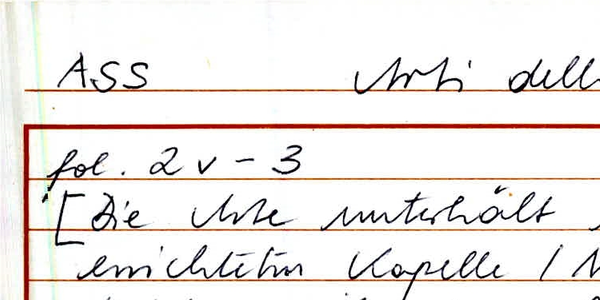 ASS Arti dell
fol. 2v - 3
[Die Arte unterhält
errichteten Kapelle /